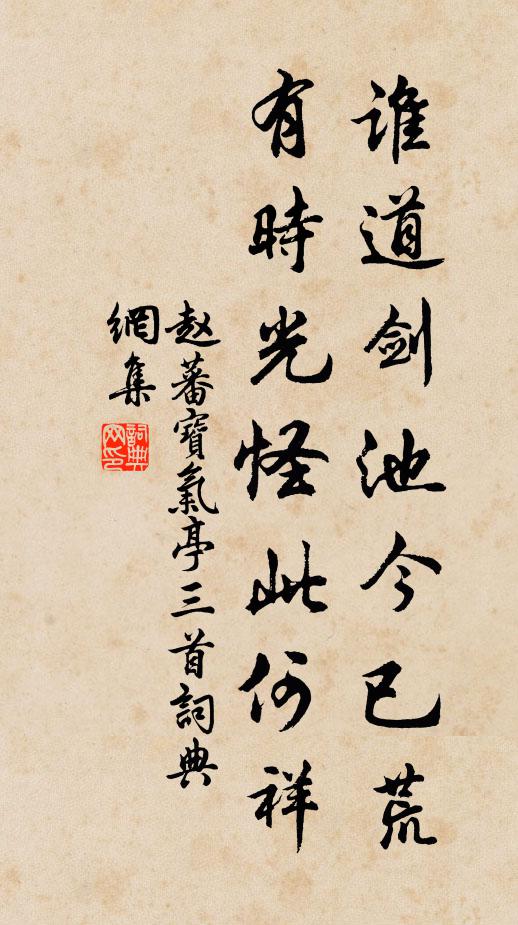 谁道剑池今已荒
有時光怪此何祥
赵蕃寶氣亭三首詞典
網集
詞典
网印